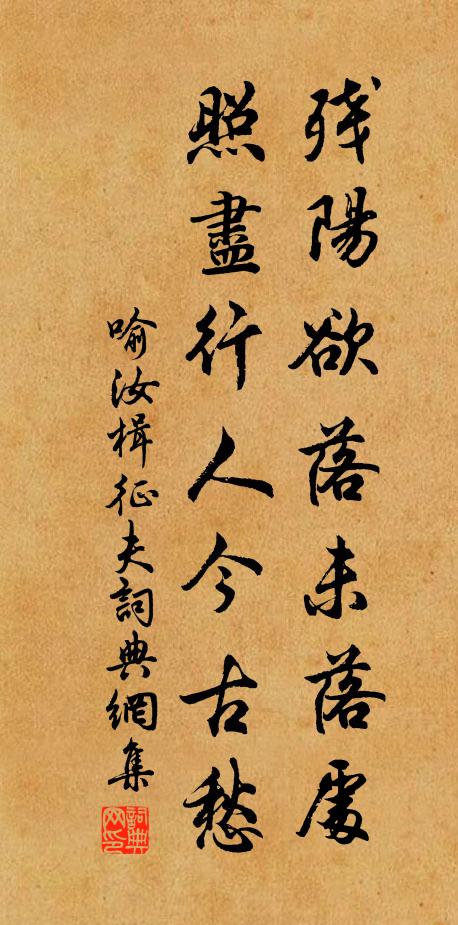 残陽欲落未落處
照盡行人今古愁
喻汝楫征夫詞典網集
詞典
网印